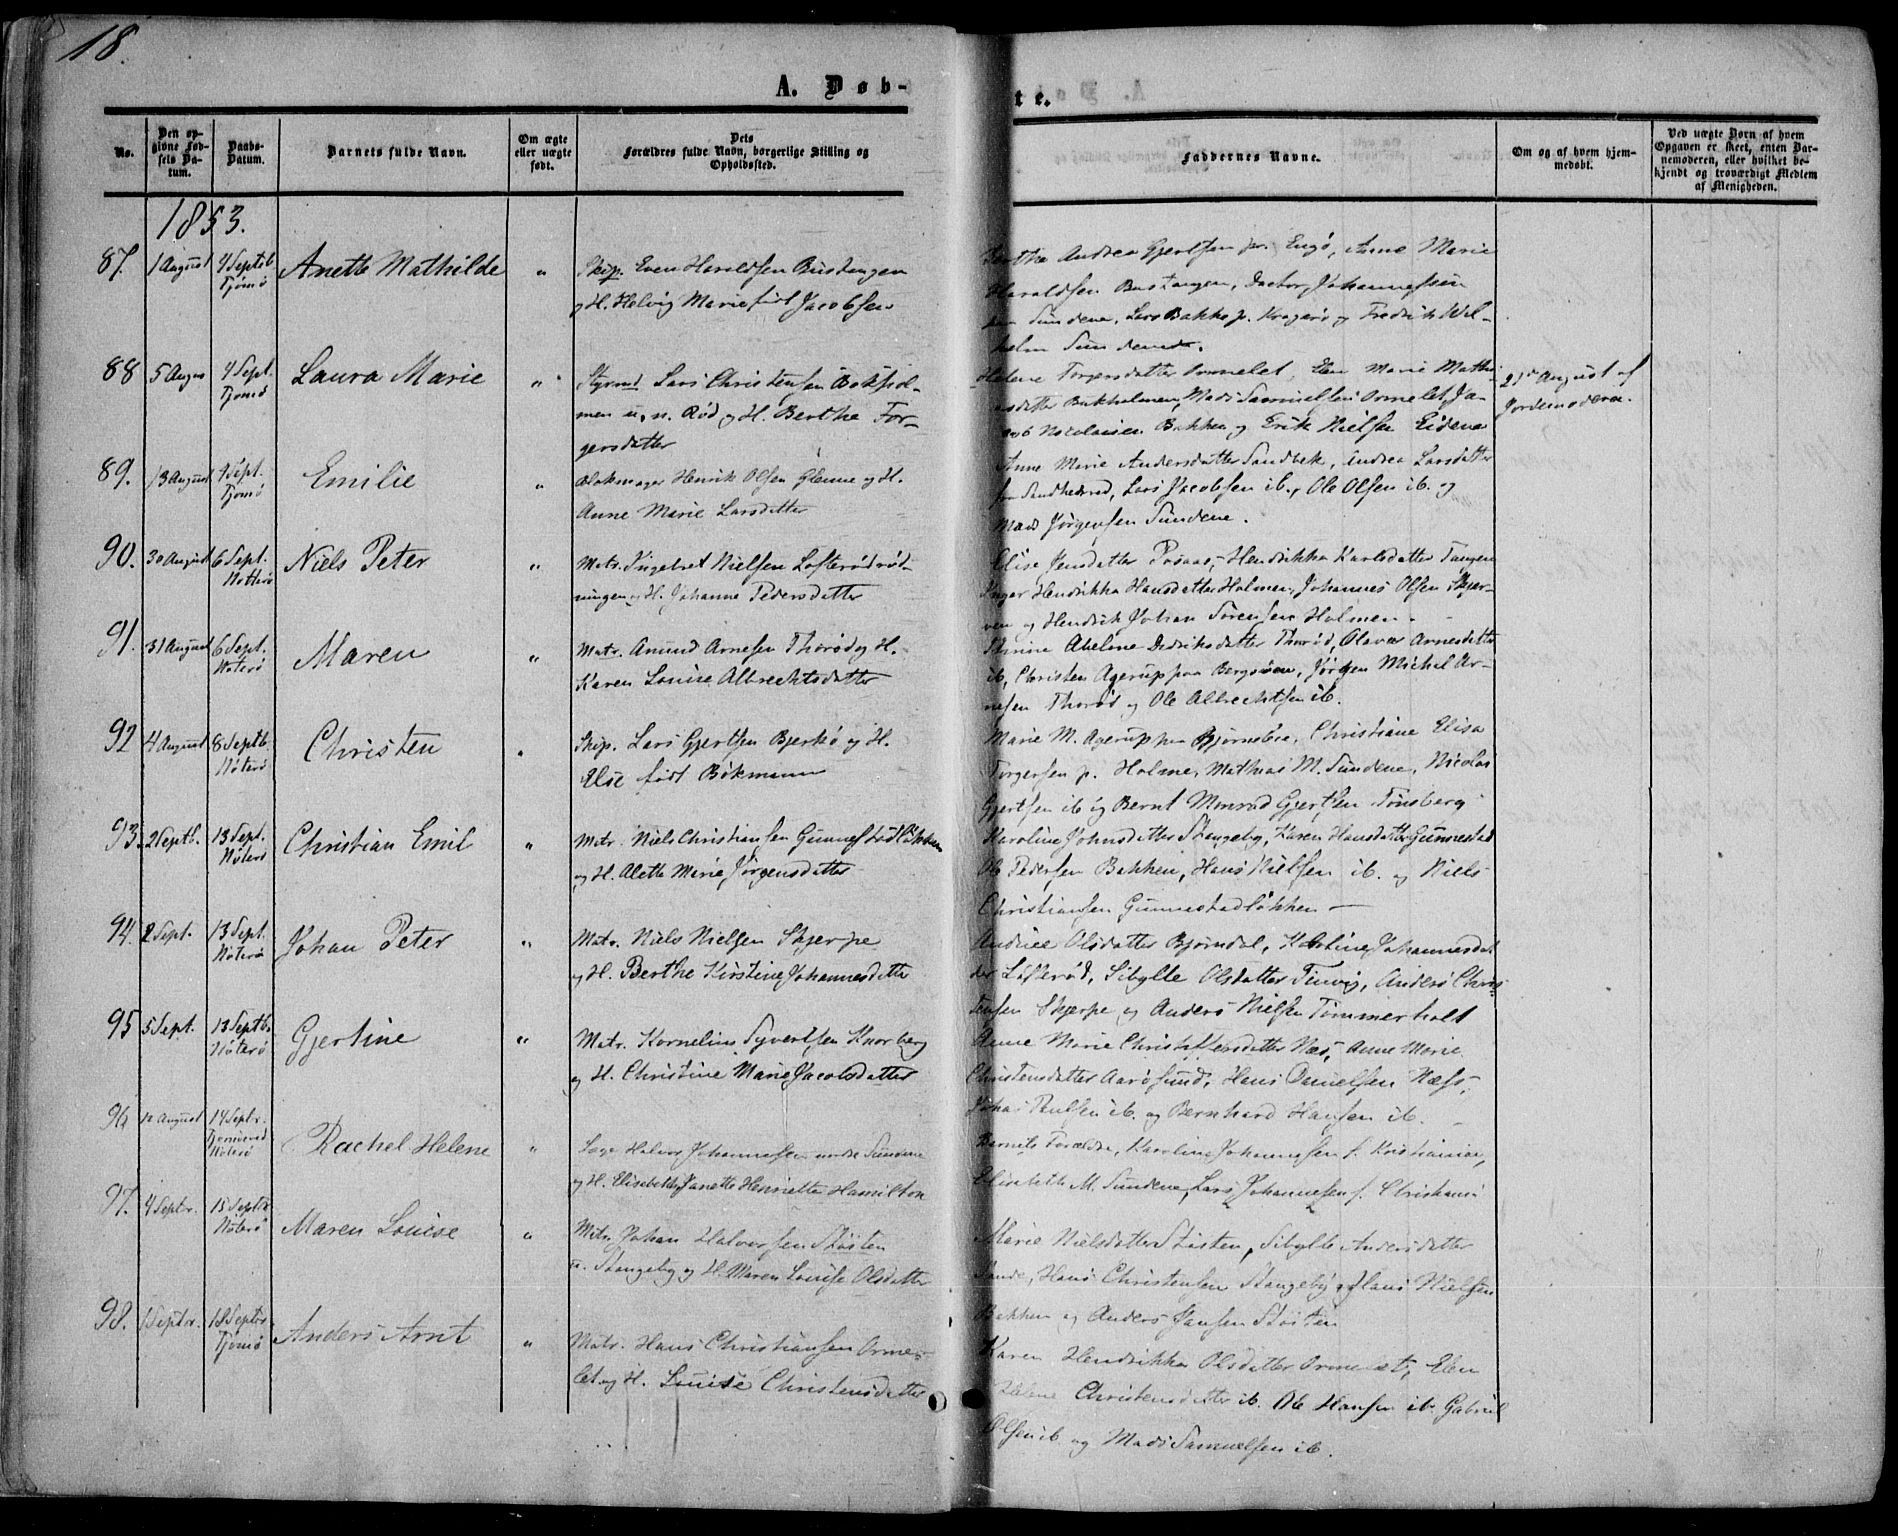 18.
A. Døb-
te.
No.
Den op-
givne Fød-
sels Da-
tum.
Daabs-
Datum.
Barnets fulde Navn.
Om ægte
eller uægte
født.
Dets
Forældres fulde Navn, borgerlige Stilling og
Opholdssted.
Faddernes Navne.
Om og af hvem hjem-
medøbt.
Ved uægte Børn af hvem
Opgaven er skeet, enten Bar-
nemoderen, eller hvilket be-
kjendt og troværdigt Medlem
af Menigheden.
1853.
87. 1 August 4 Septb. Tjømø Anette Mathilde " Skip. Even Haraldsen Bustangen
og H. Helvig Marie født Jacobsen
Andrea Gjertsen Engø, Anne Marie
Haraldsen Bustangen, Johannessen
Sundene, Lars Bakke p. Kragerø og Fredrik Wil-
helm Sundene.
88 5 Augus 4 Sept. Tjømø Laura Marie " Styrmd. Lars Christensen Bøkhol-
men u. n. Rød og H. Berthe Tor-
gersdatter
Helene Torgersdatter Ormelet, Elen Marie Mathi-
asdatter Bukholmen, Mads Samuelsen Ormelet, Ja-
cob Nicolaisen Bakken og Erik Nielsen Eidene
21de August af
Jordemoderen.
89. 13 August 4 Sept. Tjømø Emilie " Blokmager Henrik Olsen Glenne og H.
Anne Marie Larsdatter
Anne Marie Andersdatter Sandbek, Andrea Larsdatter
Lars Jacobsen ib., Ole Olsen ib. og
Mads Jørgensen Sundene.
90. 30 August 6 Sept. Nøtterø Niels Peter " Matr. Ingebret Nielsen Lofterødrød-
ningen og H. Johanne Pedersdatter
Elise Jensdatter Hendrikka Karlsdatter Tangen
Inger Hendrikka Hansdatter Holmen, Johannes Olsen Skjer-
ven og Hendrik Johan Sørensen Holmen.
91. 31 August 6 Sept. Nøterø Maren " Matr. Anund Arnesen Thorød og H.
Karen Louise Albrechtsdatter
Abelone Dedriksdatter Thorød, Olava Arnesdatter
ib, Christen Agerup paa Bergsøen, Jørgen Michel Ar-
nesen Thorød og Ole Albrechtsen ib.
92 4 August 8 Septb. Nøterø Christen " Skip. Lars Gjertsen Bjerkø og H.
Else født Bøkmann
Marie M. Agerup paa Bjørnebæ, Christiane Elisa
Torgersen p. Holme, Mathias M. Sundene, Nicolai
Gjertsen ib og Bernt Monrad Gjertsen Tønsberg
93 2 Septb. 13 Sept. Nøterø Christian Emil " Matr. Niels Christiansen Gunnestadløkken
og H. Alette Marie Jørgensdatter
Karoline Johnsdatter Stangeby, Karen Hansdatter Gunnestad
Ole Pedersen Bakken, Hans Nielsen ib. og Niels
Christiansen Gunnestadløkken
94. 2 Sept. 13 Sept. Nøterø Johan Peter " Matr. Niels Nielsen Skjerpe
og H. Berthe Kirstine Johannesdatter
Olsdatter Bjørndal, Johannesdat
ter Lofterød, Sibylle Olsdatter Tinvig, Anders Chris-
tensen Skjerpe og Anders Nielsen Tømmerholt
95 5 Sept. 13 Septb. Nøterø Gjertine " Matr. Kornelius Syvertsen Knarberg
og H. Christine Marie Jacobsdatter
Anne Marie Christoffersdatter Næs, Anne Marie
Christensdatter Aarøsund, Hans Danielsen Næss,
Johas Paulsen ib. og Bernhard Hansen ib.
96 12 August 14 Septr. Nøterø Rachel Helene " Halvor Johannessen nedre Sundene
og H. Elisabeth Janette Henriette Hamilton
Barnets Forældre, Karoline Johannessen f. Kristiania,
Elisabeth M. Sundene, Lars Johannesen f. Christiania
97. 4 Septr. 15 Septr Nøterø Maren Louise " Matr. Johan Halvorsen Støsten
u. Stangeby og H. Maren Louise Olsdatter
Marie Nielsdatter Støsten, Sibylle Andersdatter
Sande, Hans Christensen Stangeby, Hans Nielsen
Bakken og Anders Jansen Støsten
98. 1 Septr. 18 Septbr Tjømø Anders Arnt " Matr. Hans Christiansen Orme-
let og H. Louise Christensdatter
Karen Hendrikka Olsdatter Ormelet, Elen
Helene Christensdatter ib. Ole Hansen ib. Gabriel
Olsen ib og Mads Samuelsen ib.